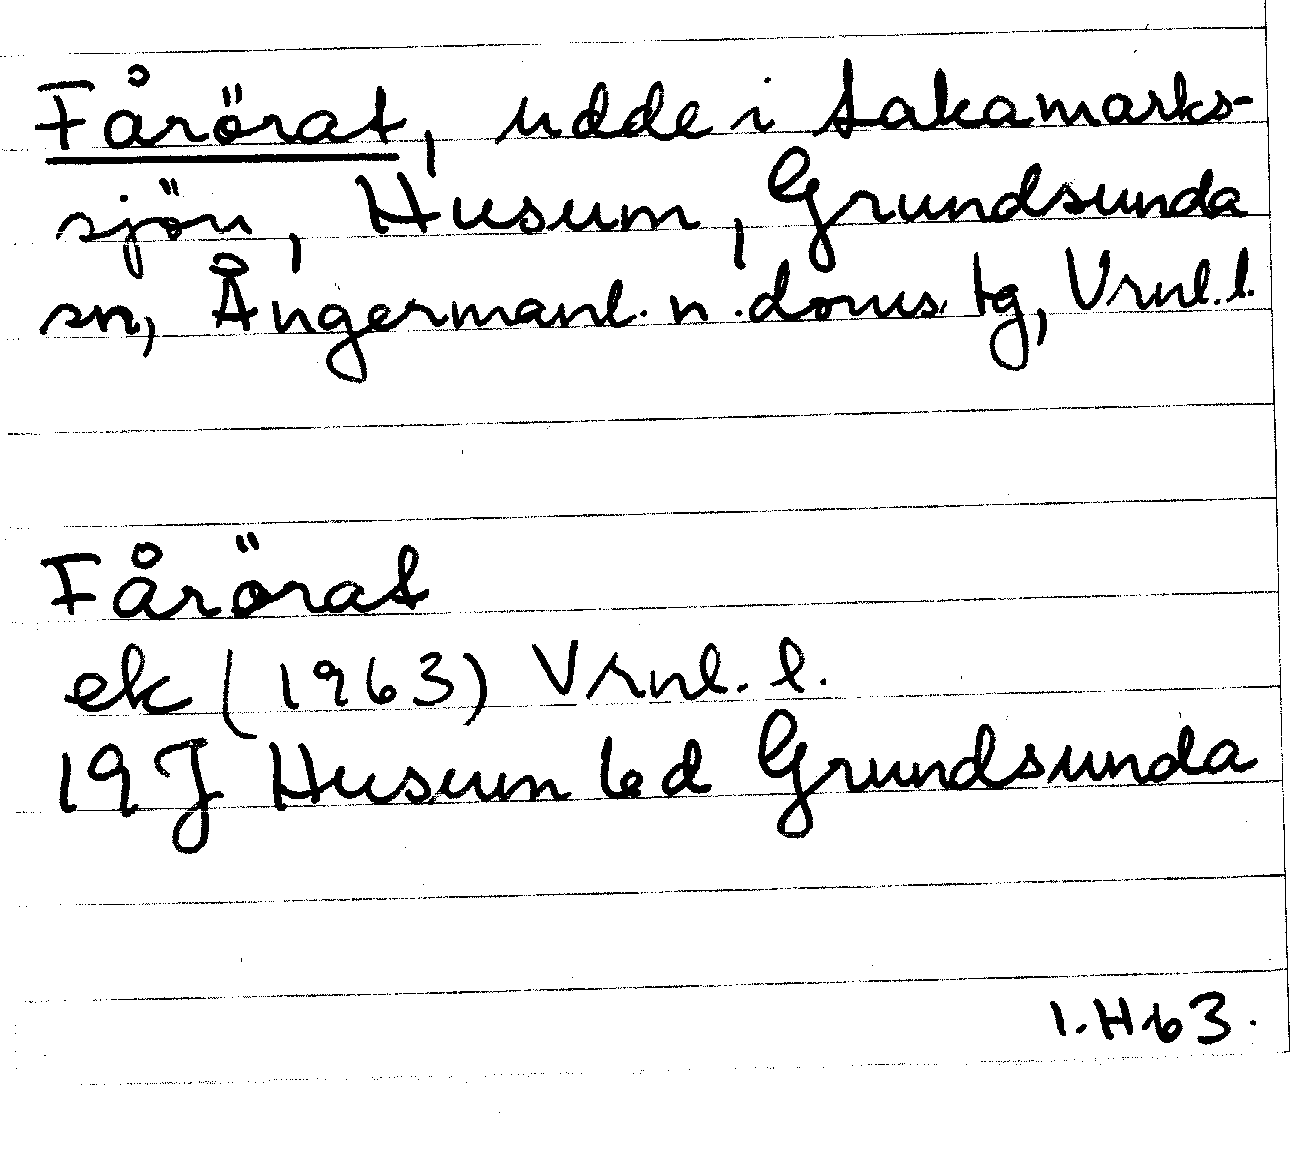 Fårörat, udde i Lakamarks-
sjön, Husum, Grundsunda
sn, Ångermanl. n. doms. tg, Vrnl. l.
Fårörat
ek (1963) Vrnl. l.
19 J Husum 6 d Grundsunda
I. H 63.